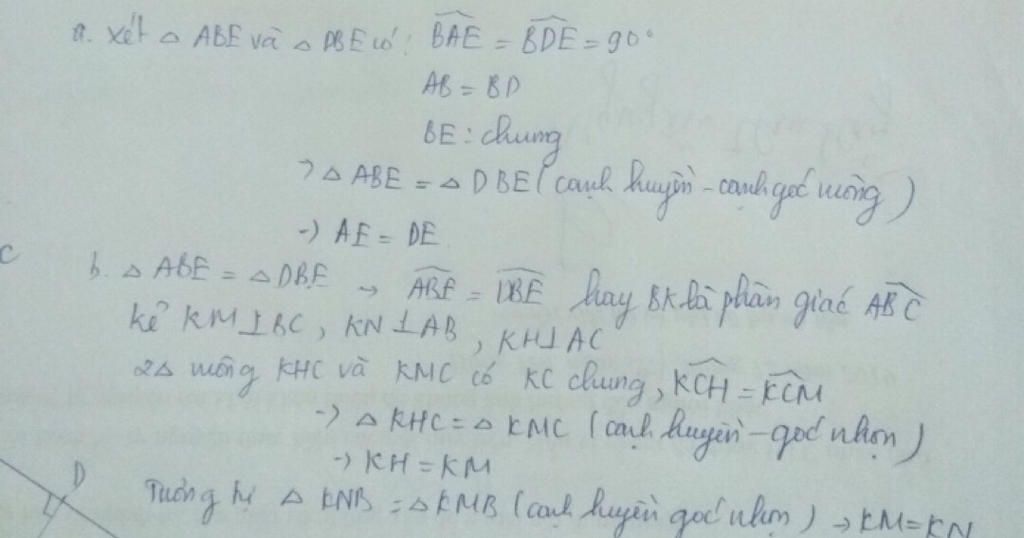 a. Xét △ ABE và △ DBE có: BAE = BDE = 90°
AB = BD
BE: chung
→ △ ABE = △ DBE (cạnh huyền - cạnh góc vuông)
→ AE = DE
C
b. △ ABE = △ DBE → ABE = DBE hay BK là phân giác ABC
kẻ KM⊥BC, KN⊥AB, KH⊥AC
2△ vuông KHC và KMC có KC chung, KCH = KCM
→ △ KHC = △ KMC (cạnh huyền - góc nhọn)
→ KH = KM
D
Tương tự △ KNB = △ KMB (cạnh huyền góc nhọn) → KM = KN